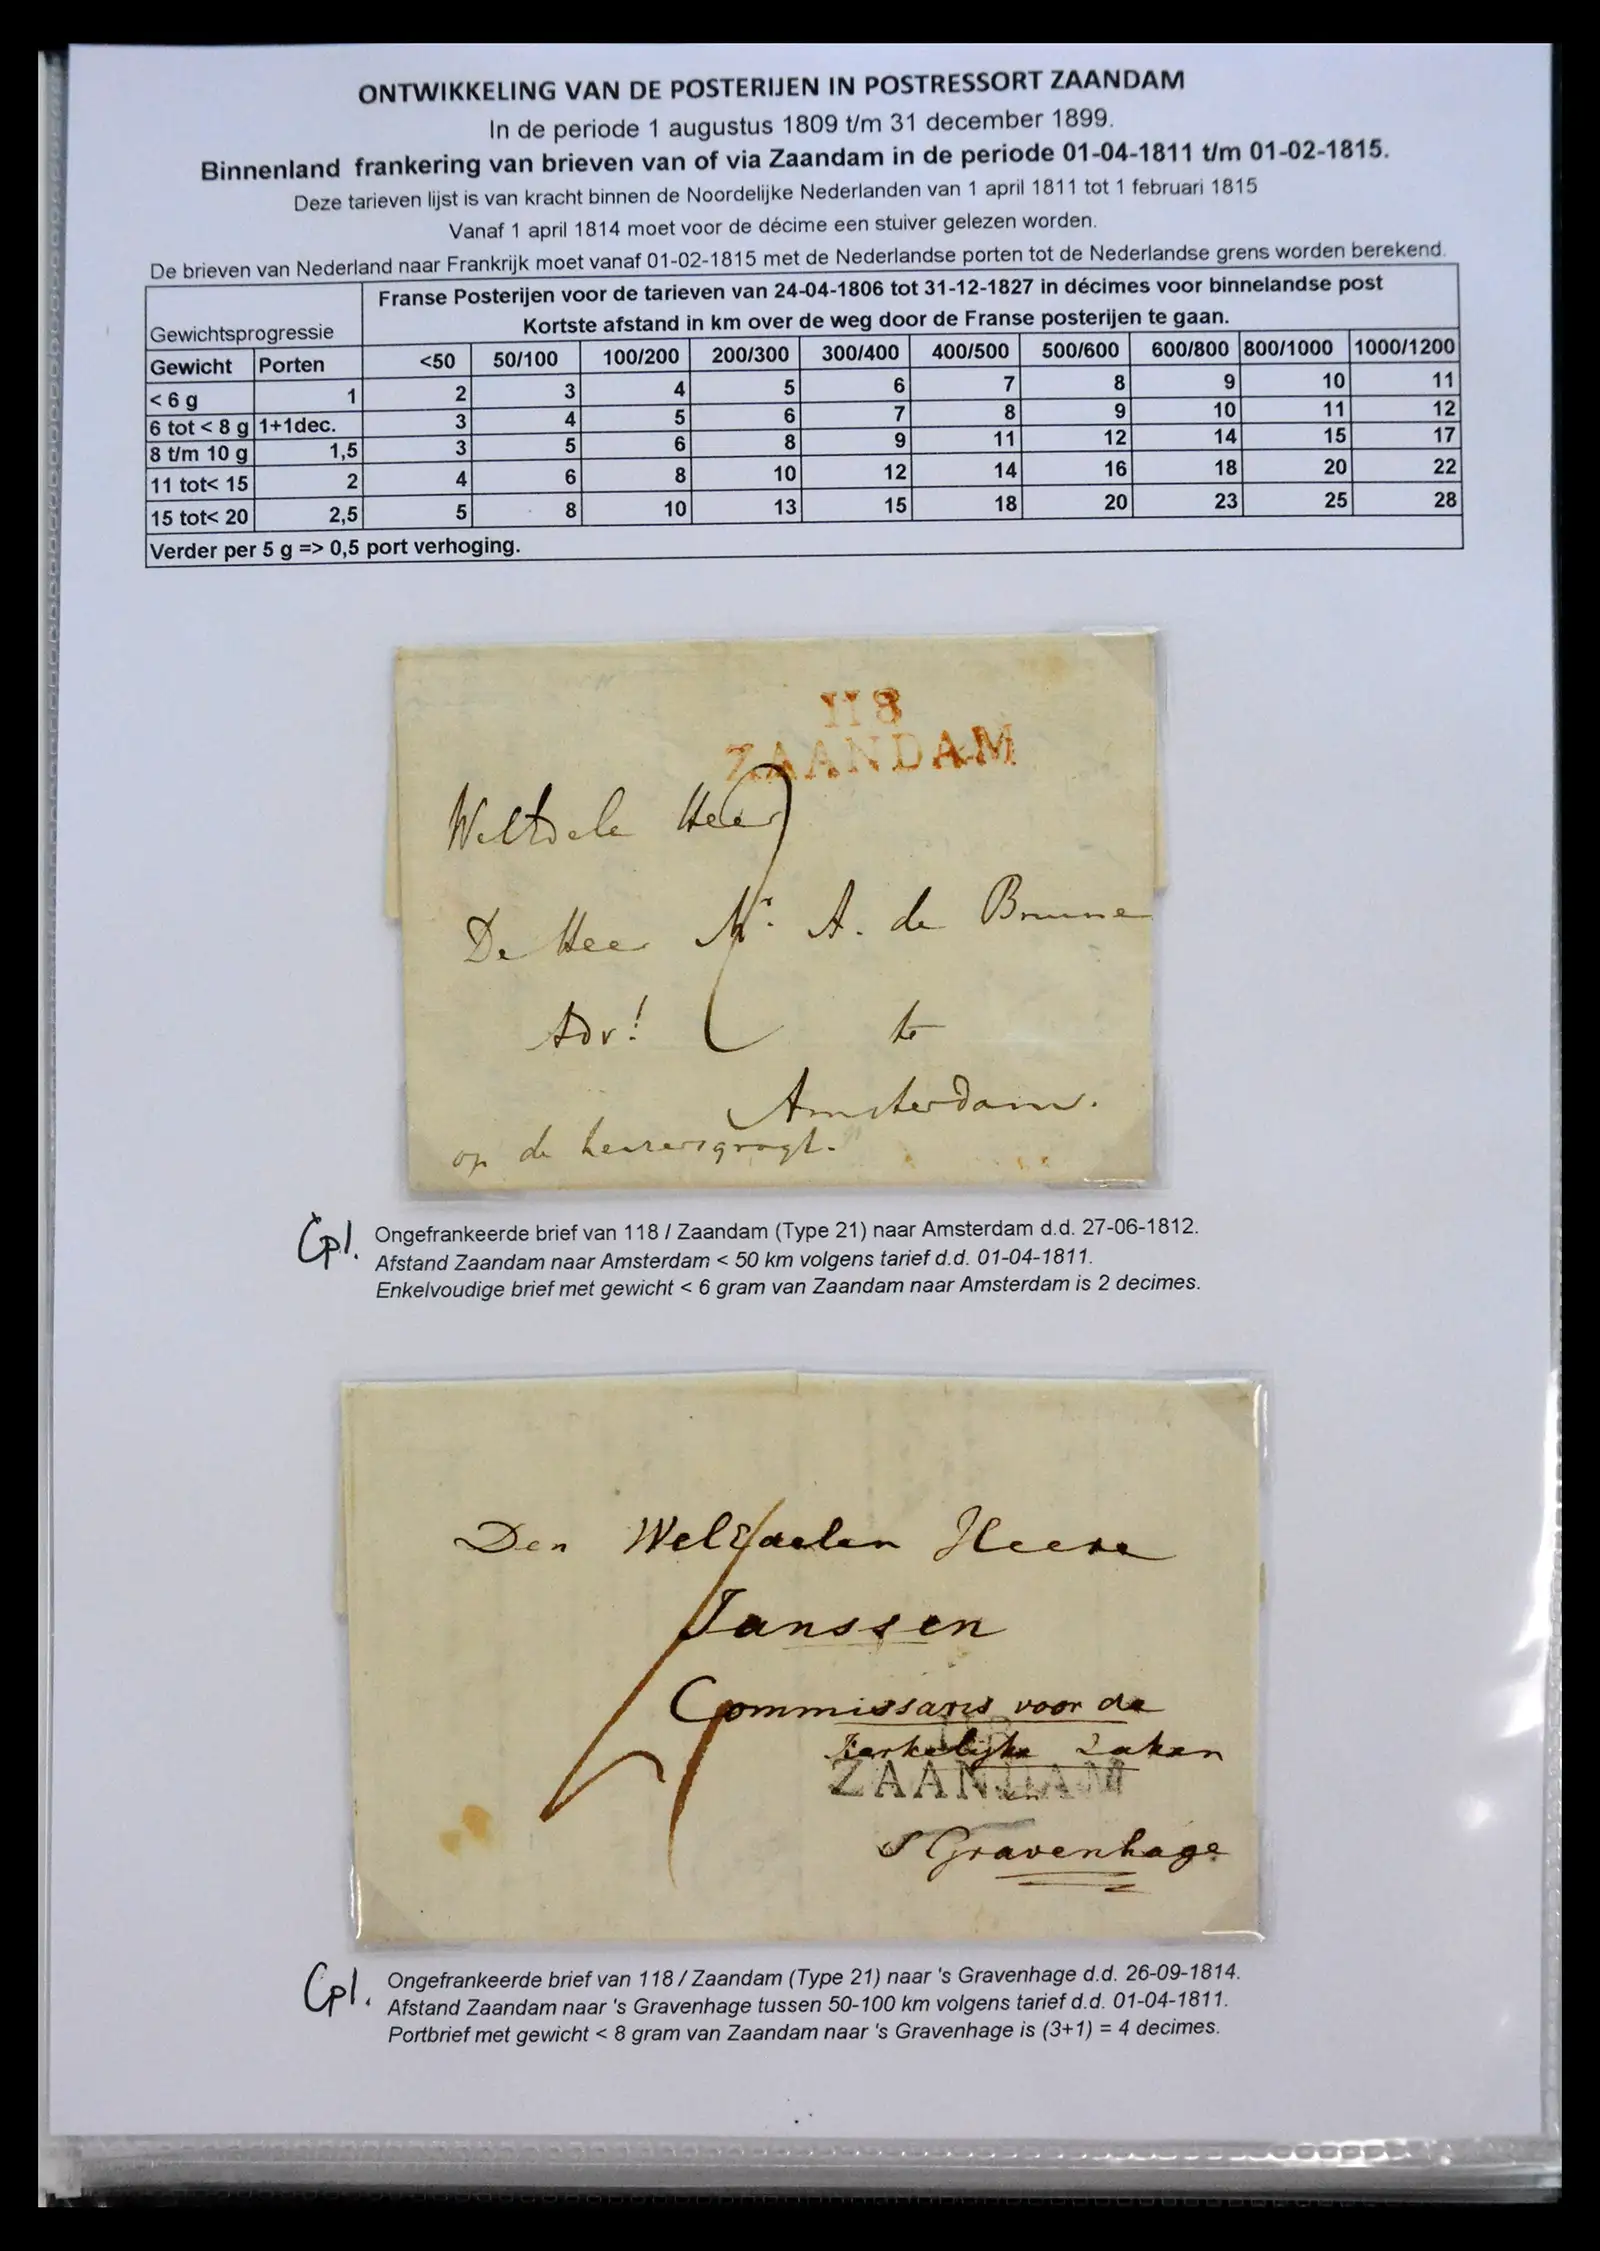 ONTWIKKELING VAN DE POSTERIJEN IN POSTRESSORT ZAANDAM
In de periode 1 augustus 1809 t/m 31 december 1899.
Binnenland frankering van brieven van of via Zaandam in de periode 01-04-1811 t/m 01-02-1815.
Deze tarieven lijst is van kracht binnen de Noordelijke Nederlanden van 1 april 1811 tot 1 februari 1815
Vanaf 1 april 1814 moet voor de décime een stuiver gelezen worden.
De brieven van Nederland naar Frankrijk moet vanaf 01-02-1815 met de Nederlandse porten tot de Nederlandse grens worden berekend.
Franse Posterijen voor de tarieven van 24-04-1806 tot 31-12-1827 in décimes voor binnelandse post
Gewichtsprogressie Kortste afstand in km over de weg door de Franse posterijen te gaan.
Gewicht Porten <50 50/100 100/200 200/300 300/400 400/500 500/600 600/800 800/1000 1000/1200
< 6 g 1 2 3 4 5 6 7 8 9 10 11
6 tot < 8 g 1+1dec. 3 4 5 6 7 8 9 10 11 12
8 t/m 10 g 1,5 3 5 6 8 9 11 12 14 15 17
11 tot< 15 2 4 6 8 10 12 14 16 18 20 22
15 tot< 20 2,5 5 8 10 13 15 18 20 23 25 28
Verder per 5 g => 0,5 port verhoging.
118
ZAANDAM
WelEdele Heer
De Heer Mr. A. de Brune
Adv!
te
Amsterdam.
op de heerengragt.
Cpl. Ongefrankeerde brief van 118 / Zaandam (Type 21) naar Amsterdam d.d. 27-06-1812.
Afstand Zaandam naar Amsterdam < 50 km volgens tarief d.d. 01-04-1811.
Enkelvoudige brief met gewicht < 6 gram van Zaandam naar Amsterdam is 2 decimes.
Den WelEdelen Heere
Janssen
Commissaris voor de
Kerkelijke Zaken
ZAANDAM
en
s Gravenhage
Cpl. Ongefrankeerde brief van 118 / Zaandam (Type 21) naar 's Gravenhage d.d. 26-09-1814.
Afstand Zaandam naar 's Gravenhage tussen 50-100 km volgens tarief d.d. 01-04-1811.
Portbrief met gewicht < 8 gram van Zaandam naar 's Gravenhage is (3+1) = 4 decimes.